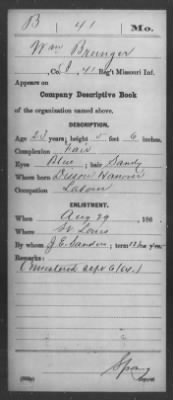 B 41 Mo.
Wm Brunger
, Co. I, 41 Reg't Missouri Inf.
Appears on
Company Descriptive Book
of the organization named above.
DESCRIPTION.
Age 23 years; height 5 feet 6 inches.
Complexion Fair
Eyes Blue; hair Sandy
Where born Hanover
Occupation Labour
ENLISTMENT.
When Aug 29, 186
Where St Louis
By whom J. E. Sander; term 12 mo y'rs.
Remarks:
Copyist.